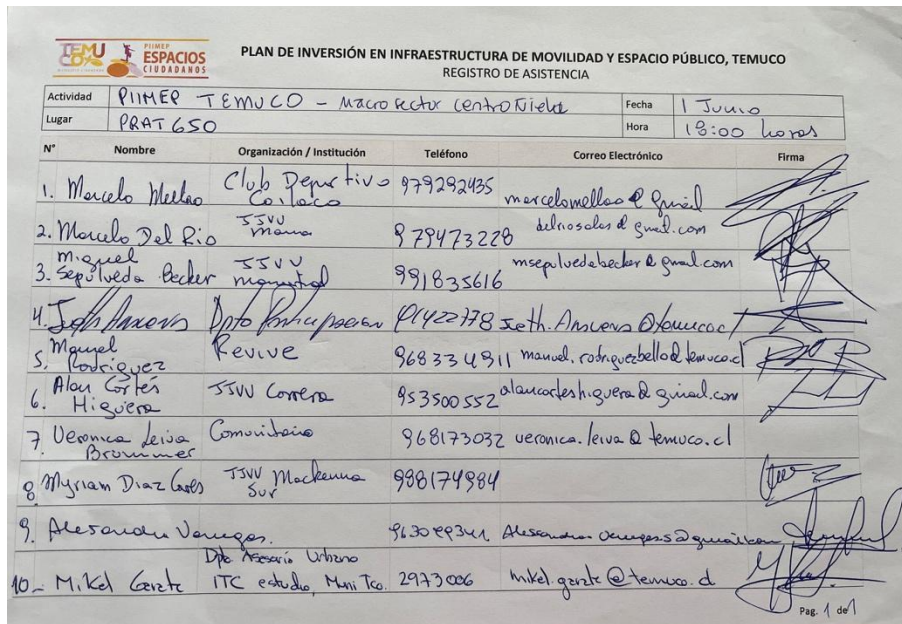 TEMUCO
PIIMEP
ESPACIOS
CIUDADANOS
PLAN DE INVERSIÓN EN INFRAESTRUCTURA DE MOVILIDAD Y ESPACIO PÚBLICO, TEMUCO
REGISTRO DE ASISTENCIA
Actividad PIIMEP TEMUCO - Macrosector centro Fecha 1 Junio
Lugar PRAT 650 Hora 18:00 horas
N° Nombre Organización / Institución Teléfono Correo Electrónico Firma
1. Marcelo Mellao Club Deportivo Coilaco 979292435 marcelomellao@gmail
2. Marcelo Del Rio JJVV 979473228 delriosalas@gmail.com
3. Miguel Sepúlveda Becker JJVV 991835616 msepulvedabecker@gmail.com
4. Dpto Participacion
5. Manuel Rodriguez Revive 968334911 manuel.rodriguezbello@temuco.cl
6. Alan Cortés Higuera JJVV Correra 953500552 alancorteshiguera@gmail.com
7 Veronica Leiva Brummer Comunitario 968173032 veronica.leiva@temuco.cl
8 Myriam Diaz JJVV Mackenna Sur 998174984
9. Alesandra Venegas.
10- Mikel Garate Dpto Asesoría Urbano ITC estudio, Muni Tco. 2973006 mikel.garate@temuco.cl
Pag. 1 de 1